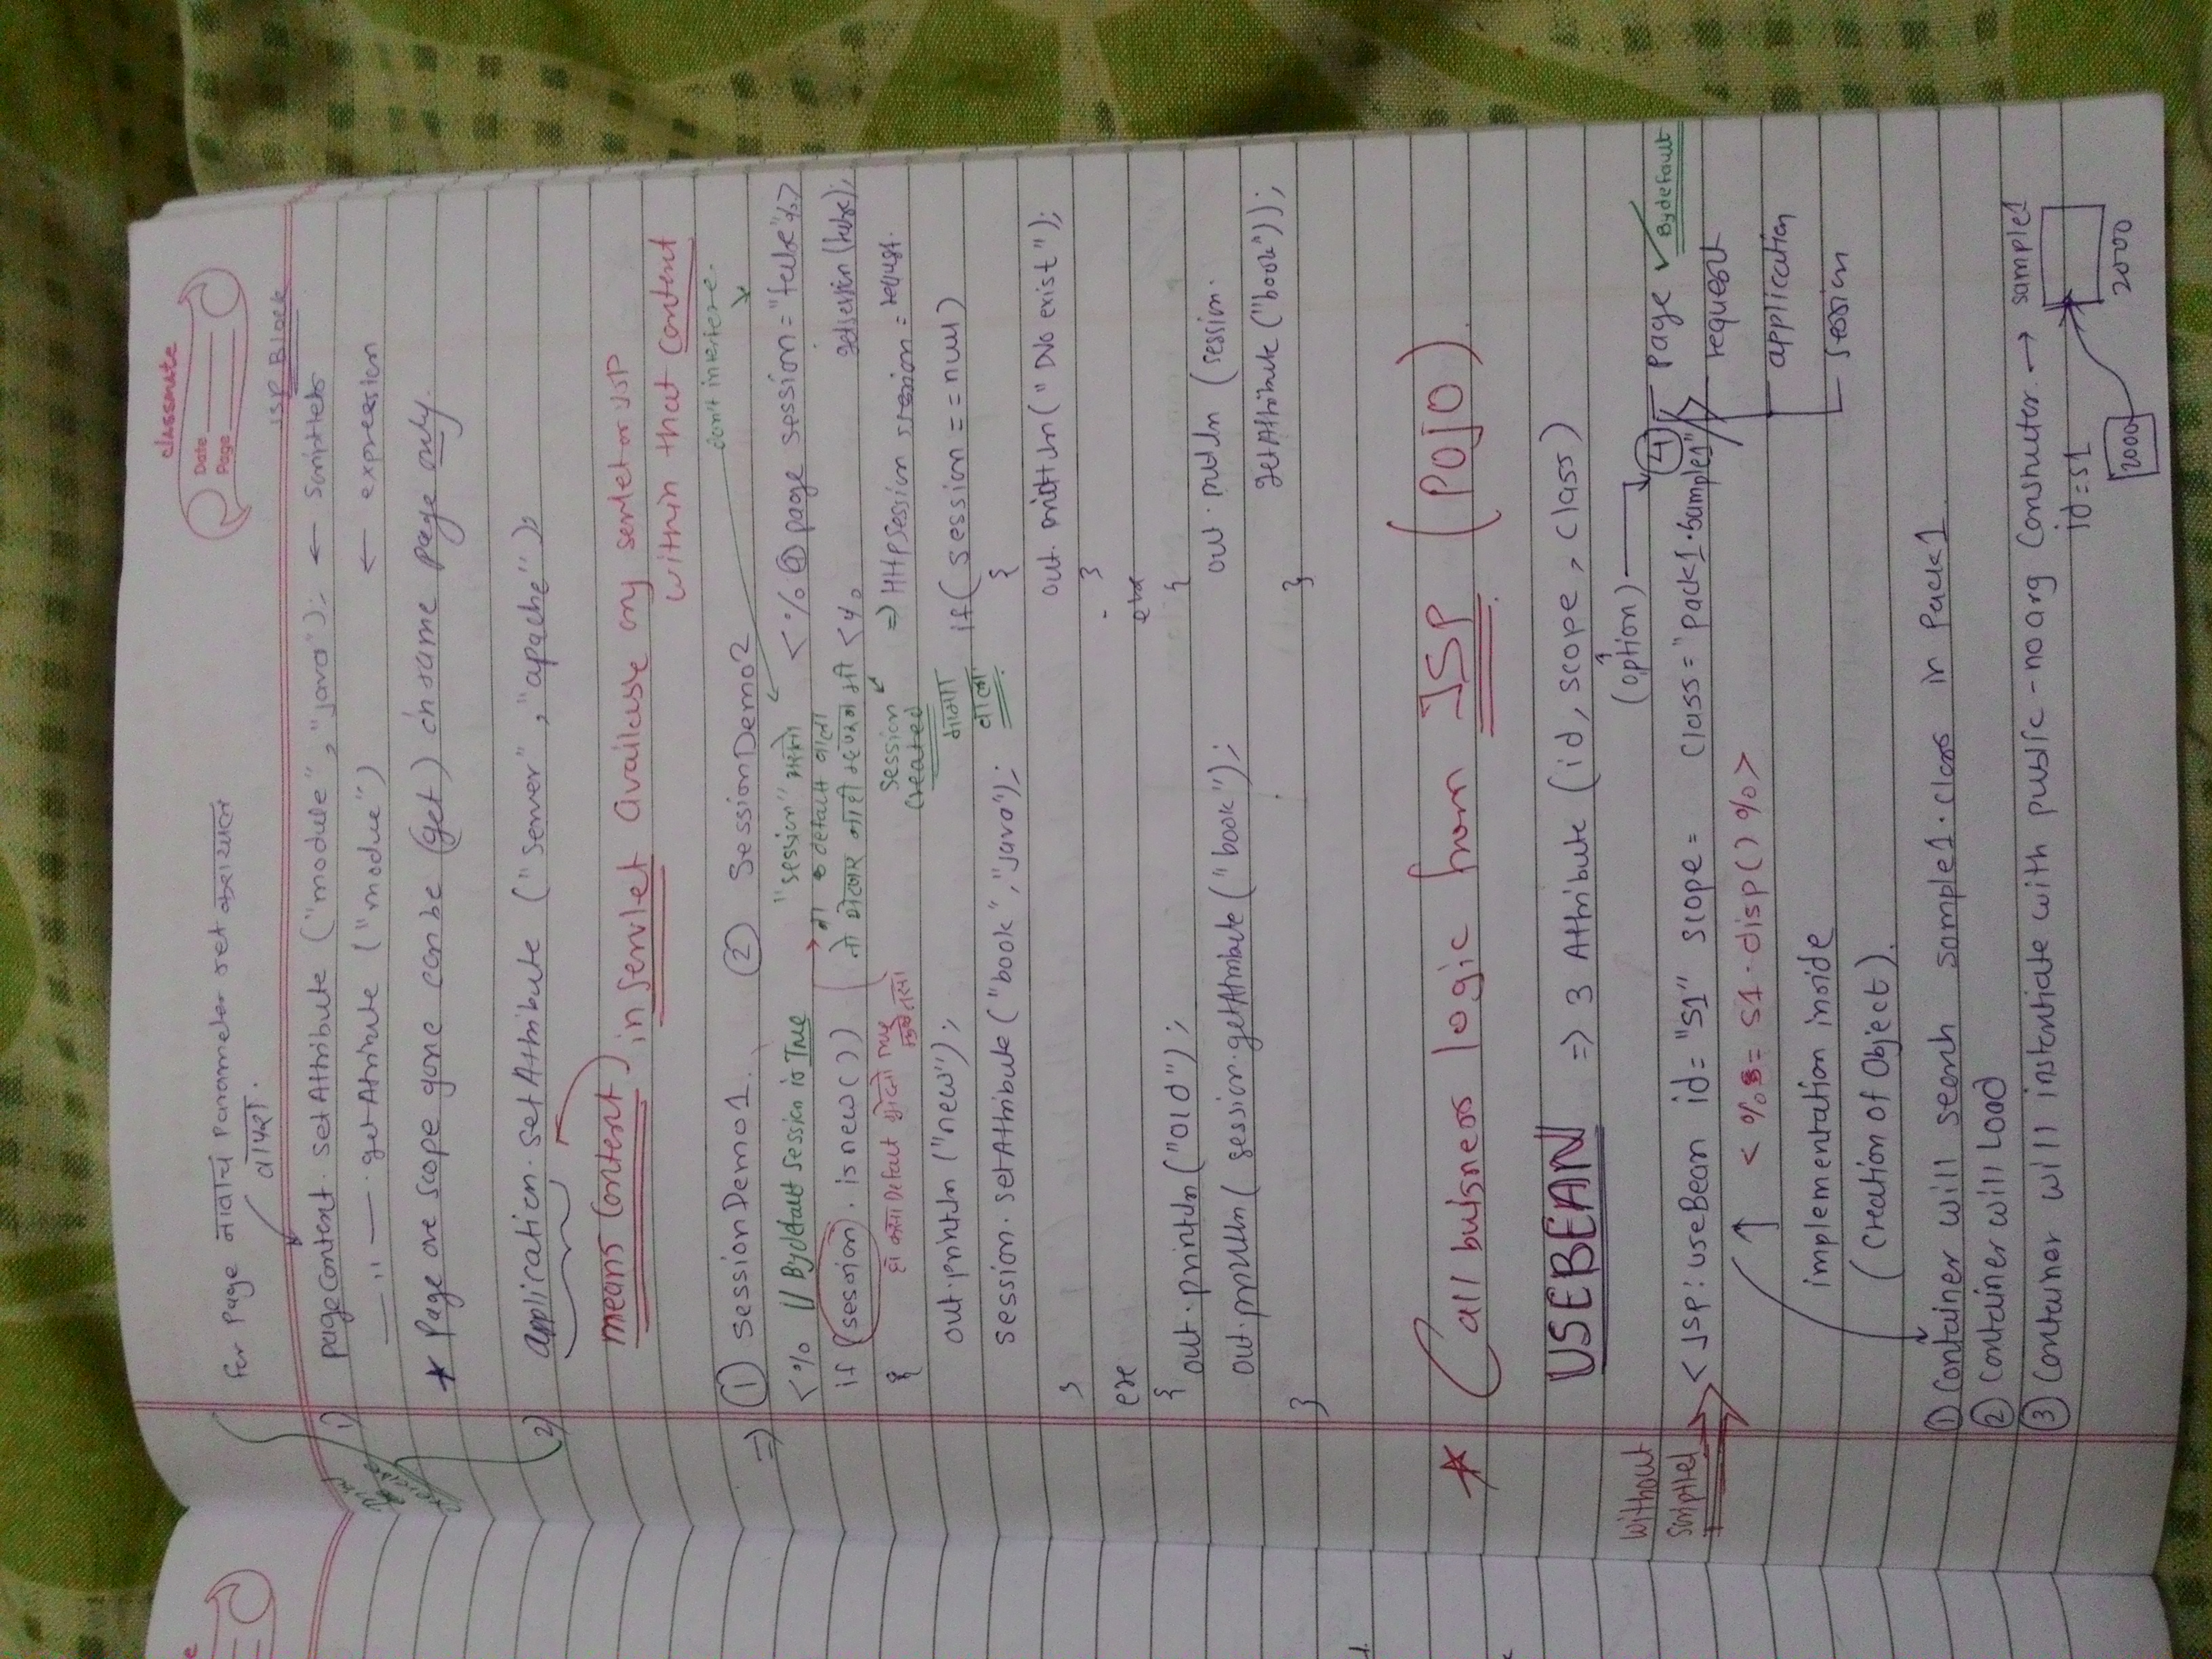 classmate
Date
Page
for Page नावाचं Parameter set करायला
वापरा.
JSP Block
1) pagecontent. setAttribute ("module", "java"); ← Scriptlets
—〃— .getAttribute ("modue") ← expression
* Page ore scope gone can be (get) in same page only.
2) application. setAttribute ("Server", "apache");
means Content in Servlet Available any servlet or JSP
within that content
don't interfere.
⇒ ① sessionDemo1. ② SessionDemo2
<% // Bydefault session is True
if (session. isnew())
{
out.println ("new");
session. setAttribute ("book", "java");
}
else
{ out.println ("old");
out.println ( session.getAttribute ("book");
}
"session"
default वाला
नाही म्हणून मी
session
created
वाला
<% @ page session = "false" %>
<% getsession (false);
⇒ HttpSession session = request.
if( session == null)
{
out. println (" No exist");
}
else
{
out. println (session.
getAttribute ("book"));
}
* Call buisness logic from JSP (POJO).
USEBEAN ⇒ 3 Attribute (id, scope, class)
(option) → ④ page ✓ Bydefault
request
application
session
without
scriptlet
<JSP: useBean id= "S1" scope= class= "pack1.Sample1" />
< %= S1. disp() %>
implementation inside
(creation of Object).
① Container will search sample1.class in Pack1
② Container will Load
③ Container will instantiate with public -no arg Constructer. → sample1
id=s1
2000 2000